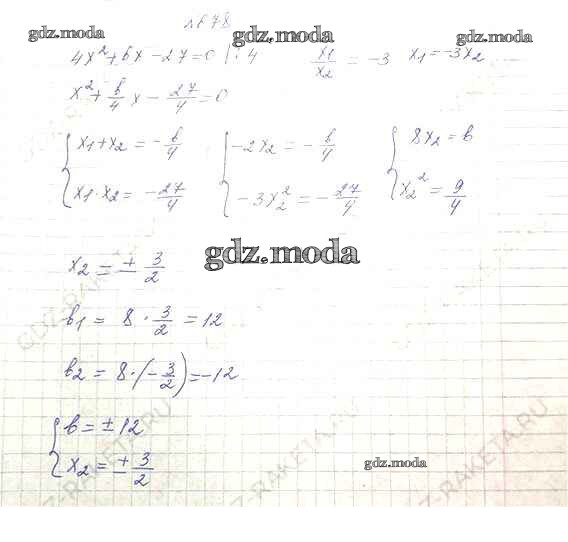 №678
gdz.moda gdz.moda
4x² + bx - 27 = 0 | : 4 x₁/x₂ = -3 x₁ = -3x₂
x² + b/4 x - 27/4 = 0
{ x₁ + x₂ = - b/4 { -2x₂ = - b/4 { 8x₂ = b
{ x₁ · x₂ = - 27/4 { -3x₂² = - 27/4 { x₂² = 9/4
gdz.moda
x₂ = ± 3/2
b₁ = 8 · 3/2 = 12
b₂ = 8 · (- 3/2) = -12
{ b = ± 12
{ x₂ = ± 3/2
gdz.moda
GDZ-RAKETA.RU
GDZ-RAKETA.RU